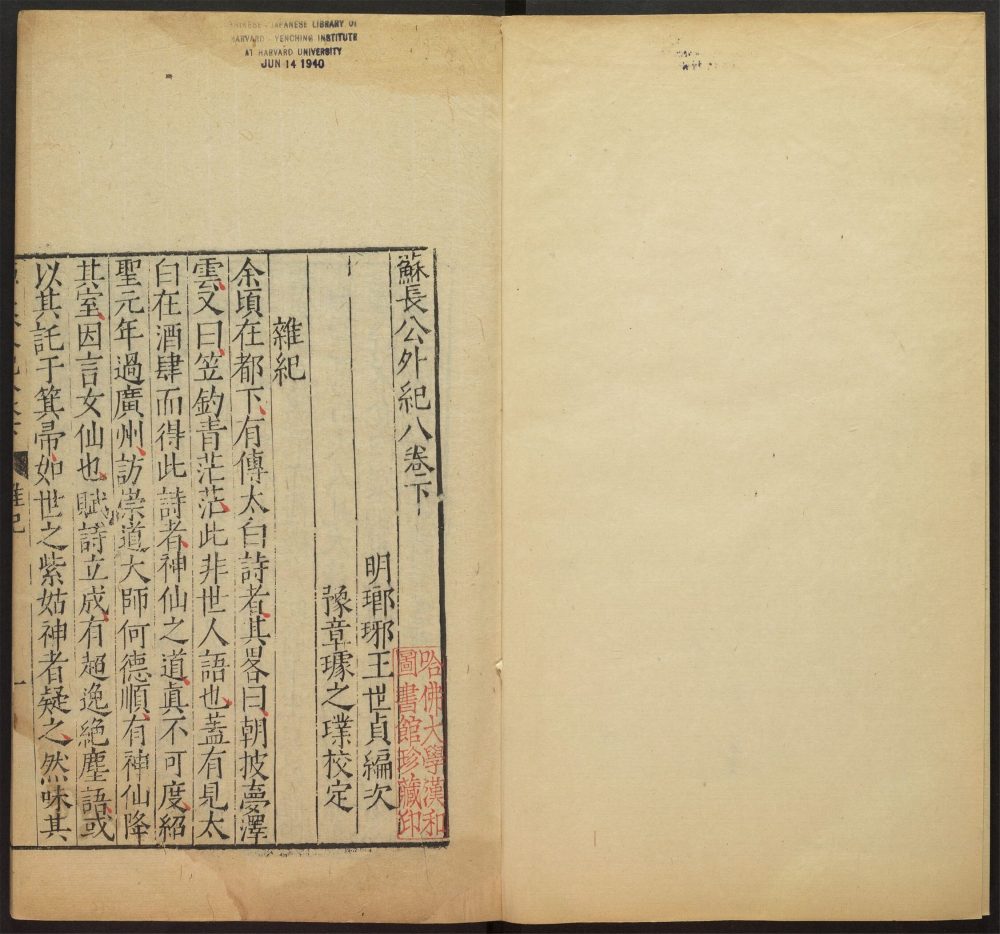 CHINESE - JAPANESE LIBRARY OF
HARVARD - YENCHING INSTITUTE
AT HARVARD UNIVERSITY
JUN 14 1940
蘇長公外紀八卷下
明瑯琊王世貞編次
豫章璩之璞校定
哈佛大學漢和
圖書館珍藏印
雜紀
余頃在都下有傳太白詩者其畧曰朝披夢澤
雲又曰笠釣青茫茫此非世人語也蓋有見太
白在酒肆而得此詩者神仙之道眞不可度紹
聖元年過廣州訪崇道大師何德順有神仙降
其室因言女仙也賦詩立成有超逸絕塵語或
以其託于箕帚如世之紫姑神者疑之然味其
雜紀
一